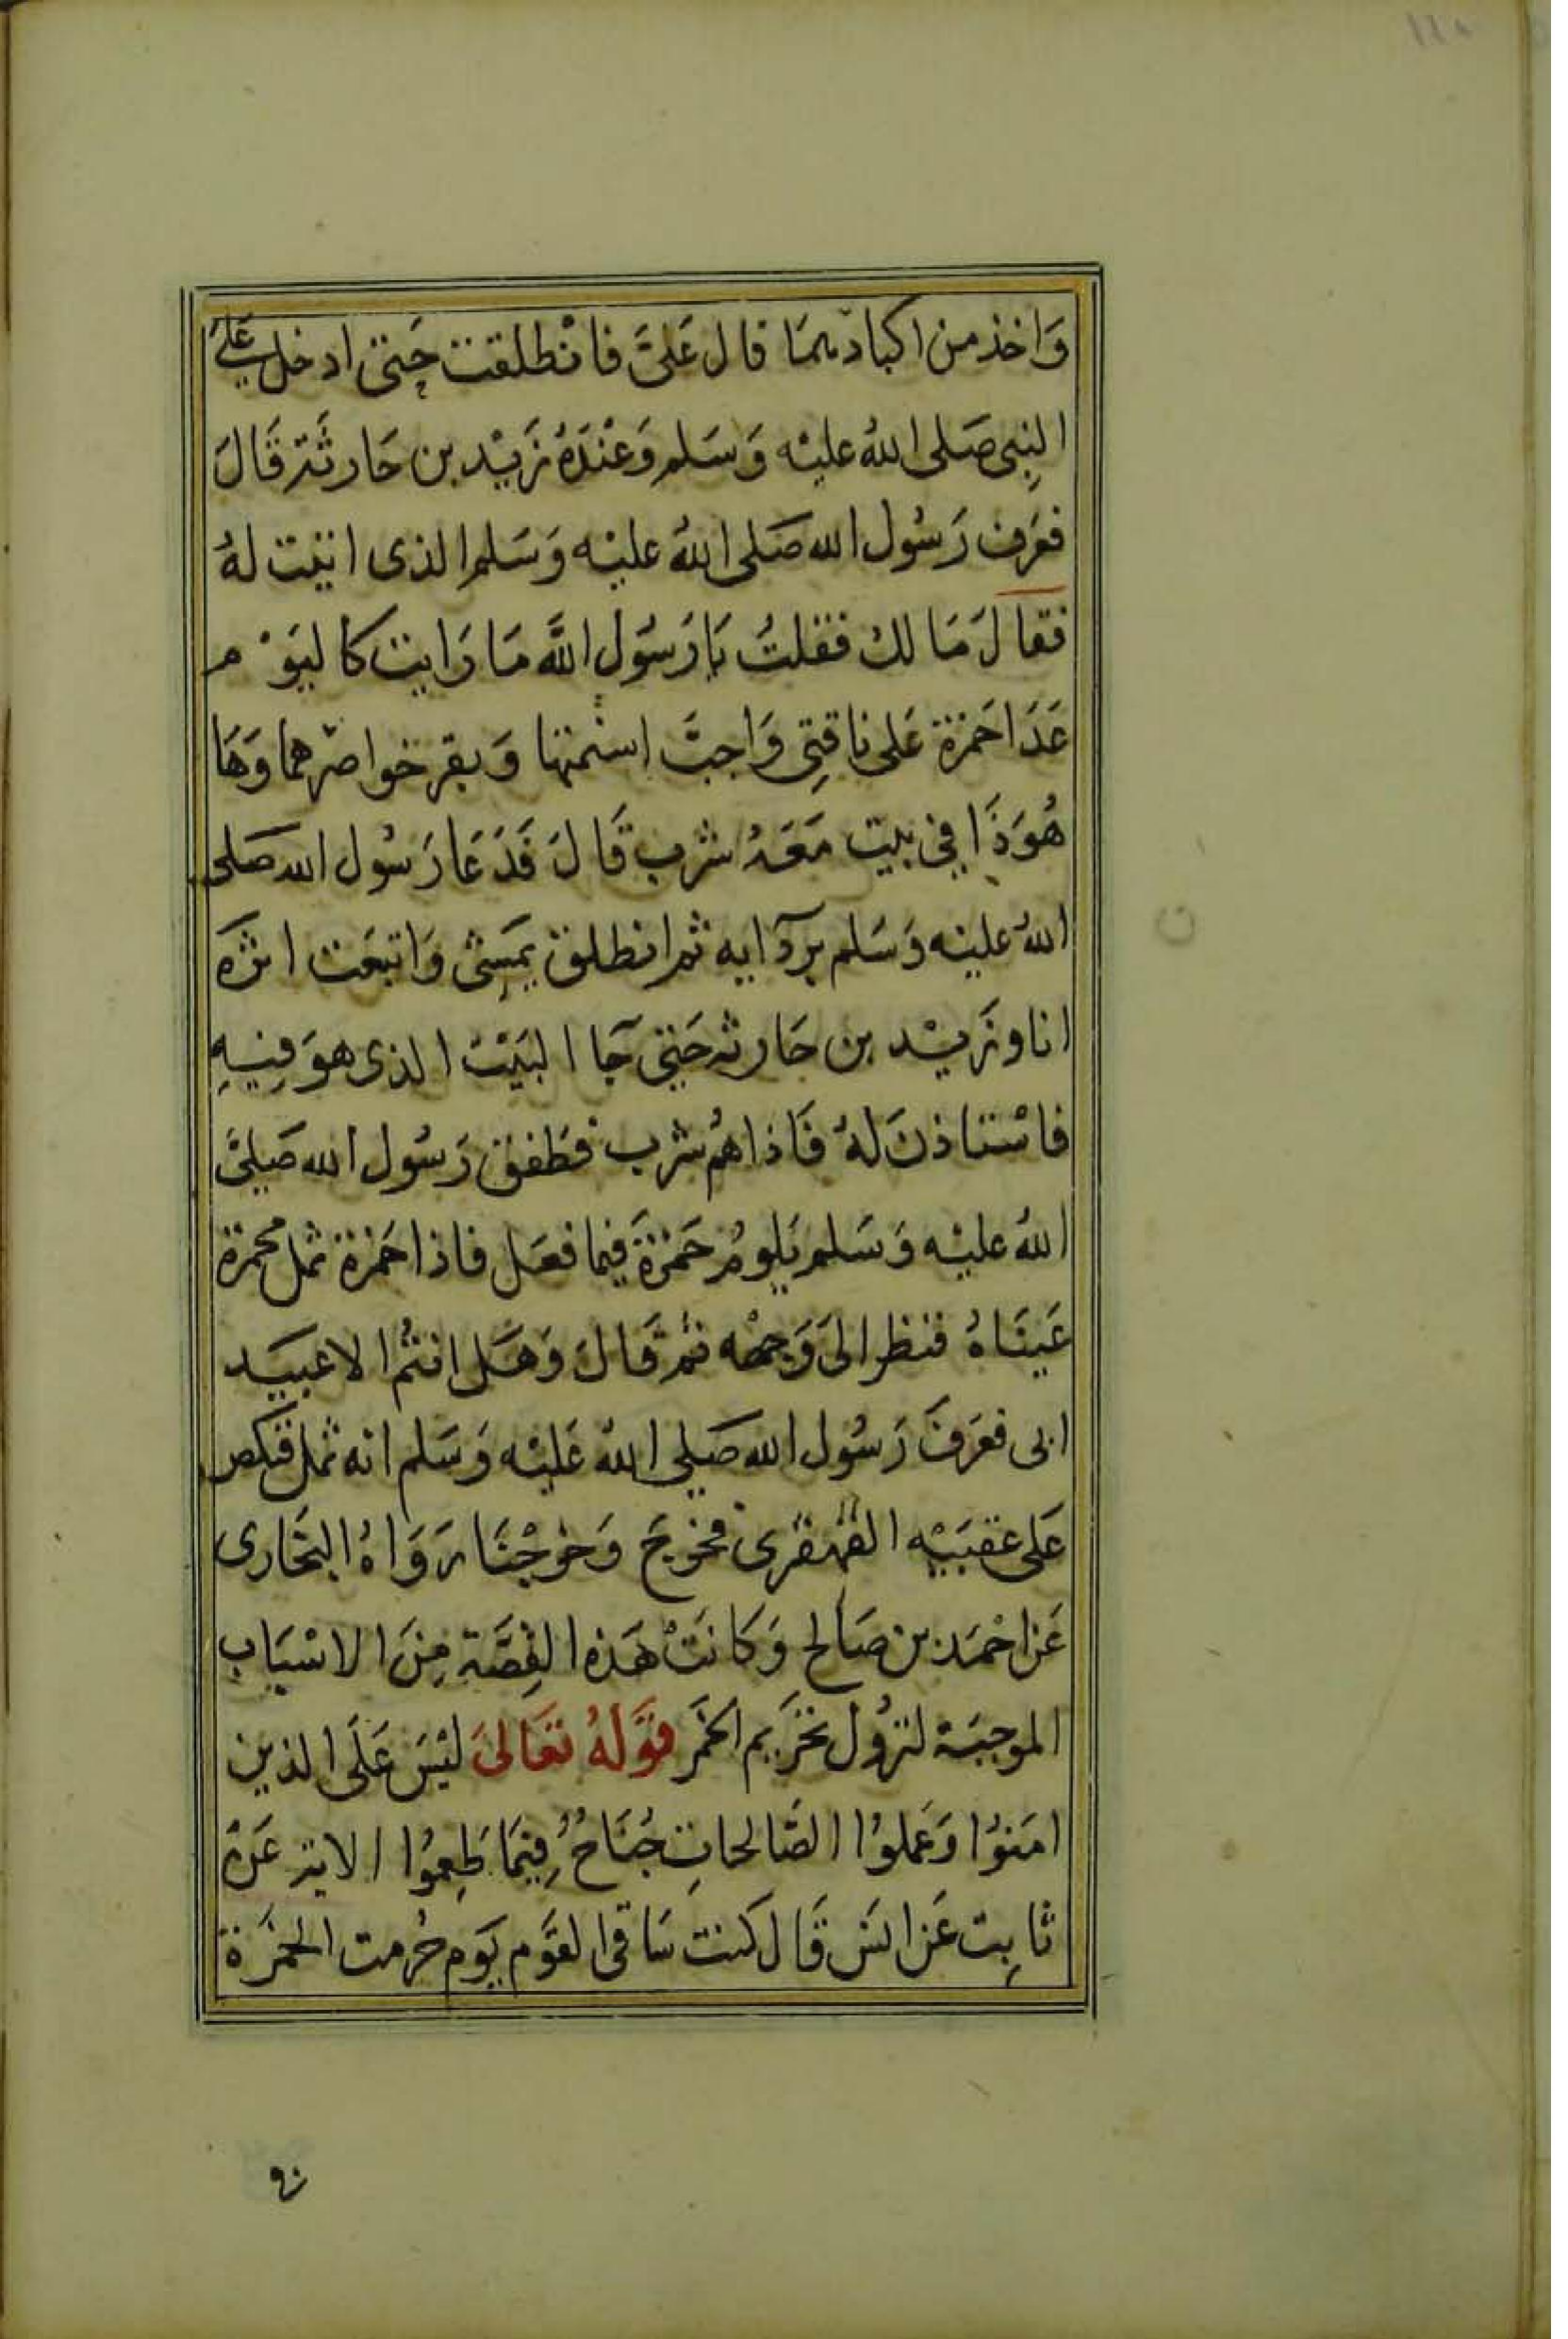 وَاخذ من اكبادهمَا قال عَلىَّ فانْطلقت حَتى ادخل عَلَى
النِبى صَلى اللهُ عليْه وَسَلم وَعْندَهُ زَيْد بن حَارثَة قَالَ
فعَرَف رَسُول الله صَلى اللهُ عليْه وَسَلم الذى اتيْت لهُ
فقالَ مَا لك فقلتُ يَا رَسُول اللَّه مَا رَايت كاليَوْم
عَدَا حَمزة عَلى ناقتِى وَاجبَّ اسْنمتها وَبقر خواصرهما وَهَا
هُوَ ذَا فِي بيت مَعَهُ شرب قَالَ فَدَعَا رَسُول الله صَلى
اللهُ عليْه وَسَلم بردَآيه ثم انطلق يمَشى وَاتبعَت اثرَه
انا وزَيْد بن حَارثه حَتى جَآ البَيْت الذى هوَ فِيْهِ
فاسْتاذنَ لهُ فَاذا هُم شرب فطَفق رَسُول الله صَلىَّ
اللهُ عليْه وَسَلم يَلومُ حَمْزةَ فيما فعَل فاذا حَمزة ثمل محمرة
عَينَاهُ فنظر الىَ وَجهْه ثم قَالَ وَهَل انتُم الا عبيَد
ابى فعَرَفَ رَسُول الله صَلي اللهُ عَليْه وَسَلم انه ثمل فنكص
عَلى عقبَيْه القهقرى فخرجَ وَخرجْنَا رَوَاهُ البخَارى
عَن احْمَد بن صَالح وَكانَتْ هَذه القِصَّة مِنَ الاسْبَاب
الموجبَة لنزُول تحَرِيم الخَمَر قوَّلهُ تعَالىَ ليْسَ عَلَى الذين
امَنوُا وَعَملوُا الصَّالحاتِ جُنَاحُ فِيمَا طَعِمُوا الاية عَن
ثابِت عَن انَس قَال كنت سَاقى القوَّم يَوم حُرمت الخمَرَة